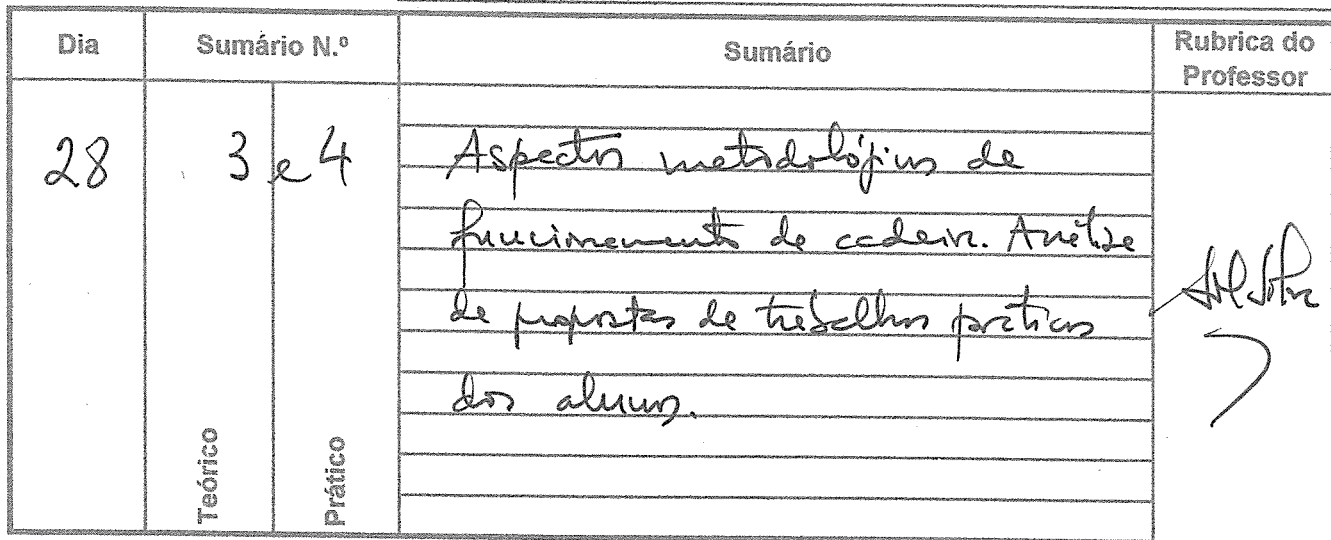 Dia Sumário N.º Sumário Rubrica do Professor
28 3 e 4 Aspectos metodológicos de
funcionamento de cadeira. Análise
de propostas de trabalhos práticos
dos alunos.
Teórico Prático